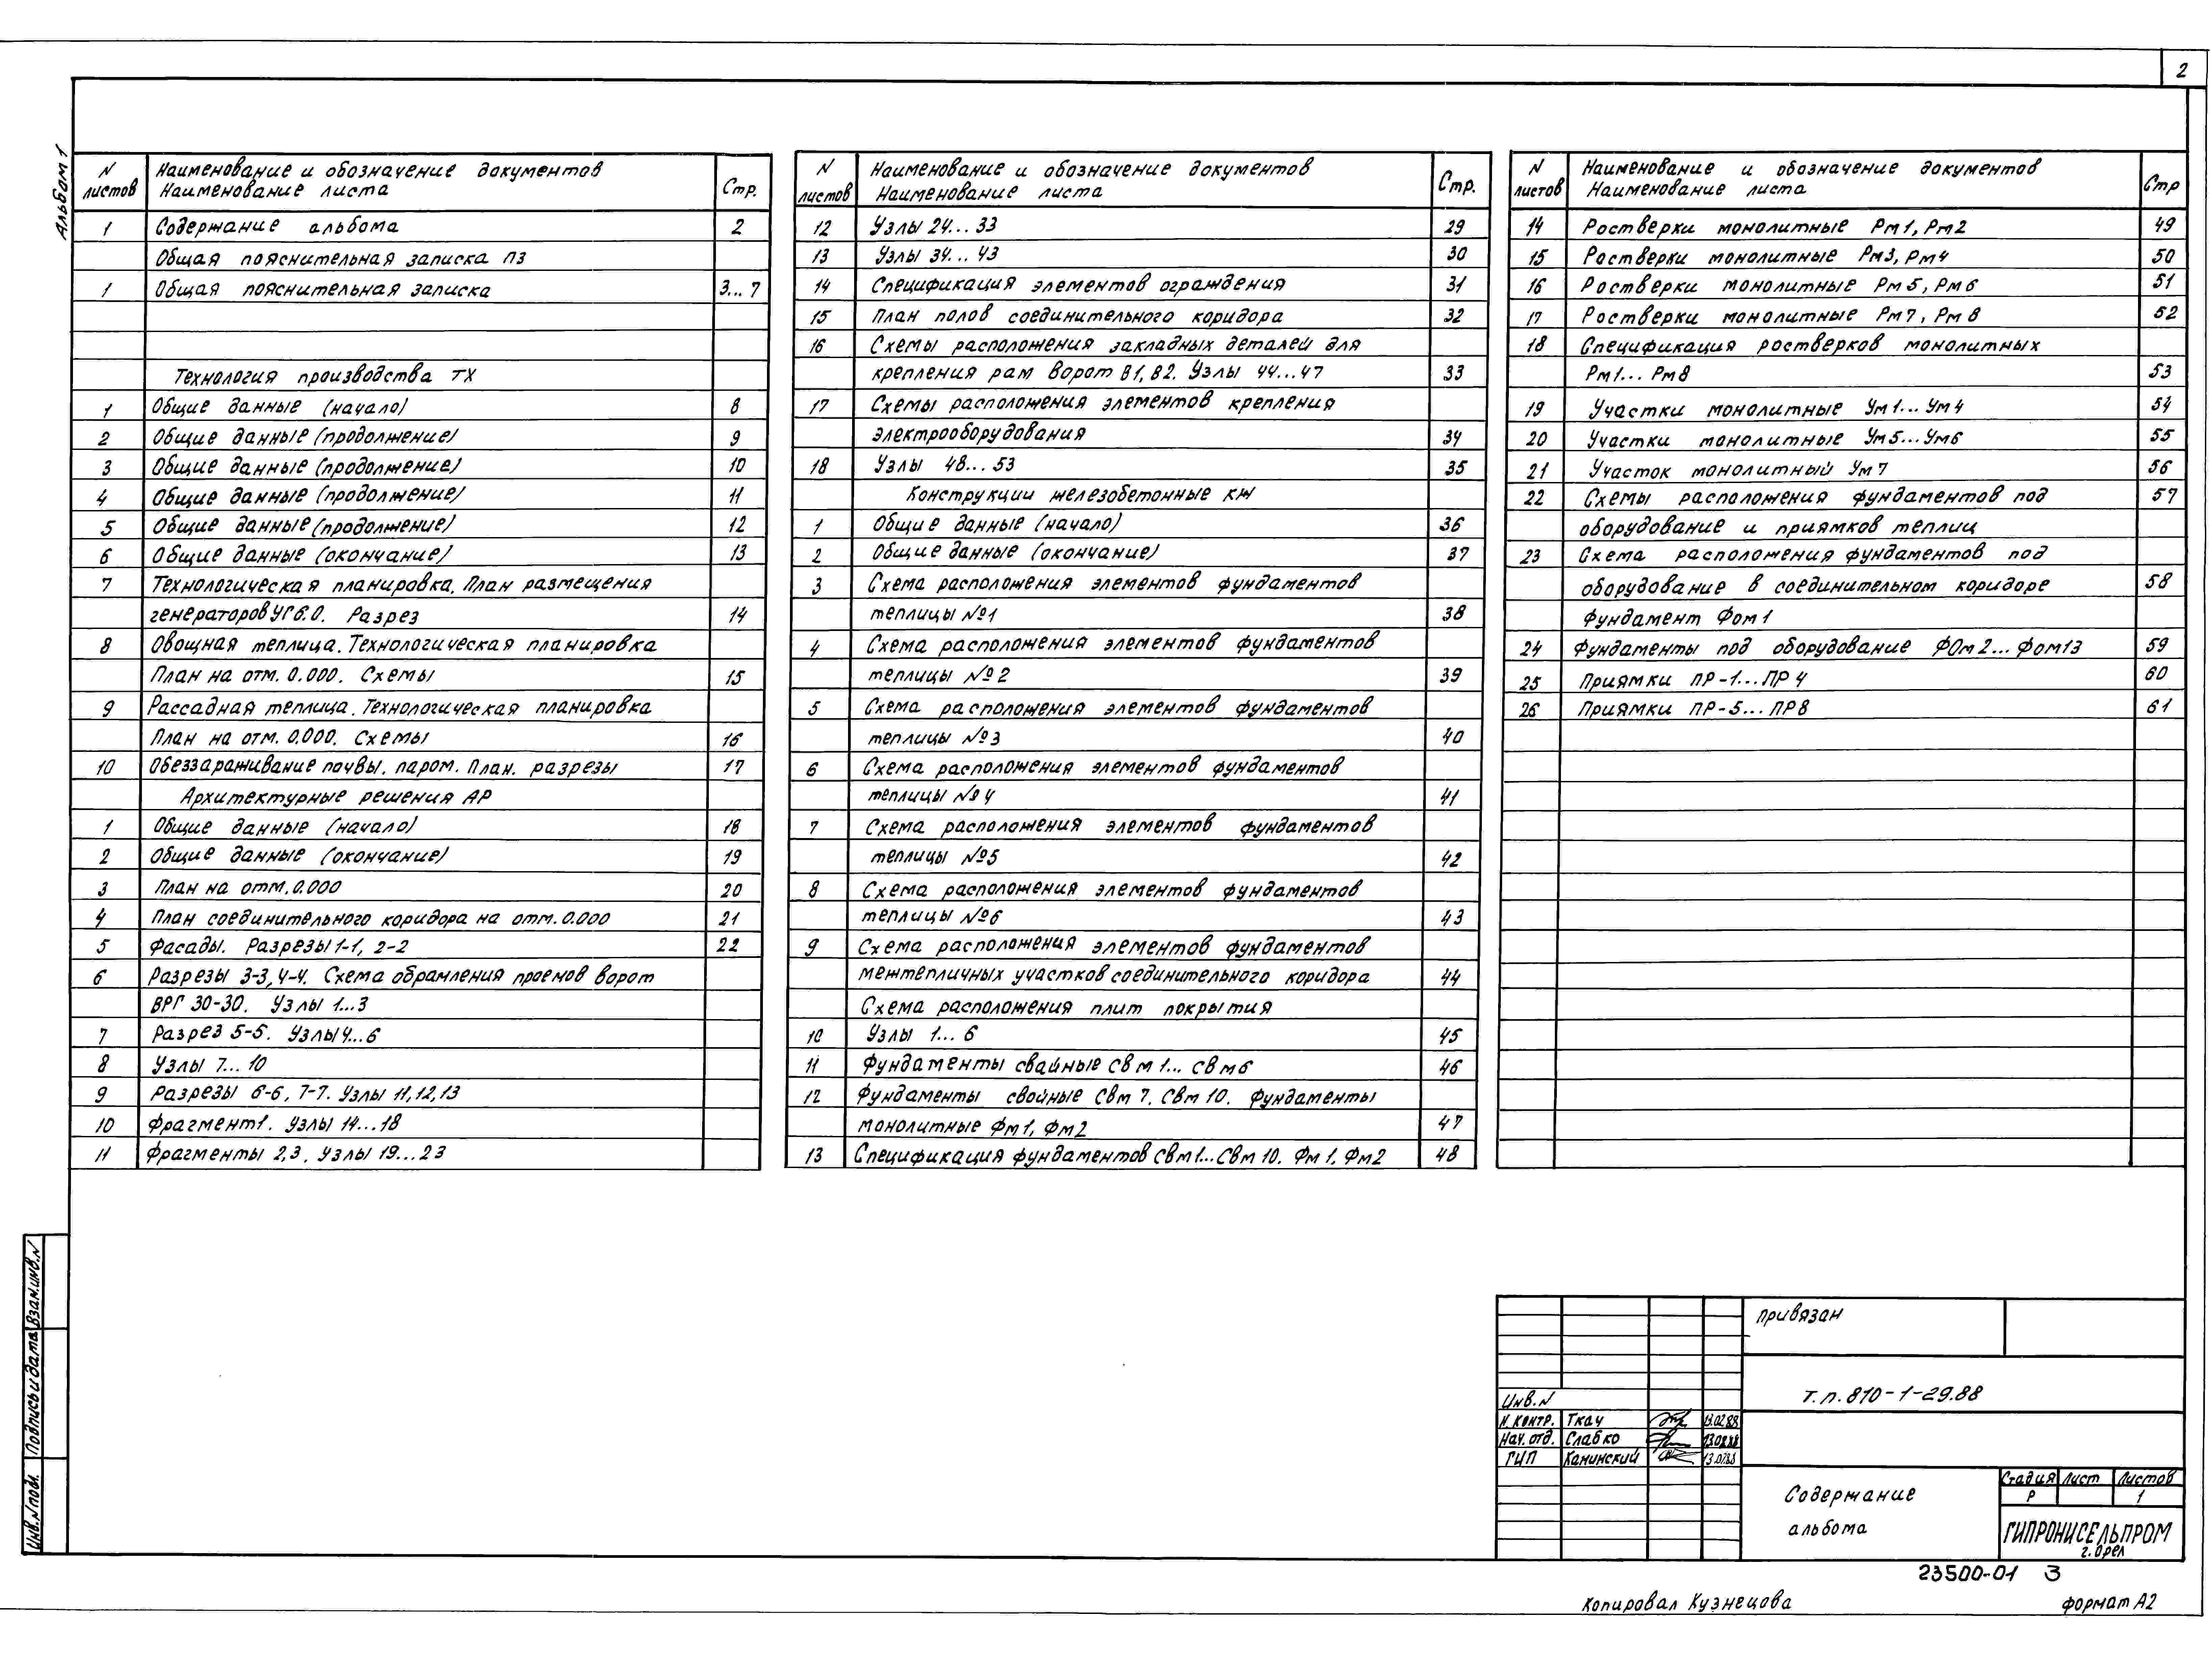 2
Альбом 1
N листов Наименование и обозначение документов Наименование листа Стр.
1 Содержание альбома 2
Общая пояснительная записка ПЗ
1 Общая пояснительная записка 3...7
Технология производства ТХ
1 Общие данные (начало) 8
2 Общие данные (продолжение) 9
3 Общие данные (продолжение) 10
4 Общие данные (продолжение) 11
5 Общие данные (продолжение) 12
6 Общие данные (окончание) 13
7 Технологическая планировка. План размещения
генераторов УГ6.0. Разрез 14
8 Овощная теплица. Технологическая планировка
План на отм. 0.000. Схемы 15
9 Рассадная теплица. Технологическая планировка
План на отм. 0.000. Схемы 16
10 Обеззараживание почвы. паром. План. разрезы 17
Архитектурные решения АР
1 Общие данные (начало) 18
2 Общие данные (окончание) 19
3 План на отм. 0.000 20
4 План соединительного коридора на отм. 0.000 21
5 Фасады. Разрезы 1-1, 2-2 22
6 Разрезы 3-3, 4-4. Схема обрамления проемов ворот
ВРГ 30-30. Узлы 1...3
7 Разрез 5-5. Узлы 4...6
8 Узлы 7...10
9 Разрезы 6-6, 7-7. Узлы 11, 12, 13
10 Фрагмент 1. Узлы 14...18
11 Фрагменты 2,3. Узлы 19...23
N листов Наименование и обозначение документов Наименование листа Стр.
12 Узлы 24...33 29
13 Узлы 34...43 30
14 Спецификация элементов ограждения 31
15 План полов соединительного коридора 32
16 Схемы расположения закладных деталей для
крепления рам ворот В1, В2. Узлы 44...47 33
17 Схемы расположения элементов крепления
электрооборудования 34
18 Узлы 48...53 35
Конструкции железобетонные КЖ
1 Общие данные (начало) 36
2 Общие данные (окончание) 37
3 Схема расположения элементов фундаментов
теплицы №1 38
4 Схема расположения элементов фундаментов
теплицы №2 39
5 Схема расположения элементов фундаментов
теплицы №3 40
6 Схема расположения элементов фундаментов
теплицы №4 41
7 Схема расположения элементов фундаментов
теплицы №5 42
8 Схема расположения элементов фундаментов
теплицы №6 43
9 Схема расположения элементов фундаментов
межтепличных участков соединительного коридора 44
Схема расположения плит покрытия
10 Узлы 1...6 45
11 Фундаменты свайные Свм 1... Свм6 46
12 Фундаменты свайные Свм 7. Свм 10. Фундаменты
монолитные Фм1, Фм2 47
13 Спецификация фундаментов Свм1...Свм 10. Фм 1, Фм2 48
N листов Наименование и обозначение документов Наименование листа Стр
14 Ростверки монолитные Рм1, Рм2 49
15 Ростверки монолитные Рм3, Рм4 50
16 Ростверки монолитные Рм5, Рм6 51
17 Ростверки монолитные Рм7, Рм8 52
18 Спецификация ростверков монолитных
Рм1... Рм8 53
19 Участки монолитные Ум1... Ум4 54
20 Участки монолитные Ум5...Ум6 55
21 Участок монолитный Ум7 56
22 Схемы расположения фундаментов под 57
оборудование и приямков теплиц
23 Схема расположения фундаментов под
оборудование в соединительном коридоре 58
Фундамент Фом1
24 Фундаменты под оборудование ФОм2... Фом13 59
25 Приямки ПР-1...ПР4 60
26 Приямки ПР-5...ПР8 61
Взам.инв.N
Подпись и дата
Инв.N подл.
привязан
Инв.N
т.п. 810-1-29.88
Н. контр. Ткач 13.02.88
Нач. отд. Слабко
ГИП Канинский
Содержание
альбома
Стадия Лист Листов
Р 1
ГИПРОНИСЕЛЬПРОМ
г. Орел
23500-01 3
Копировал Кузнецова
Формат А2